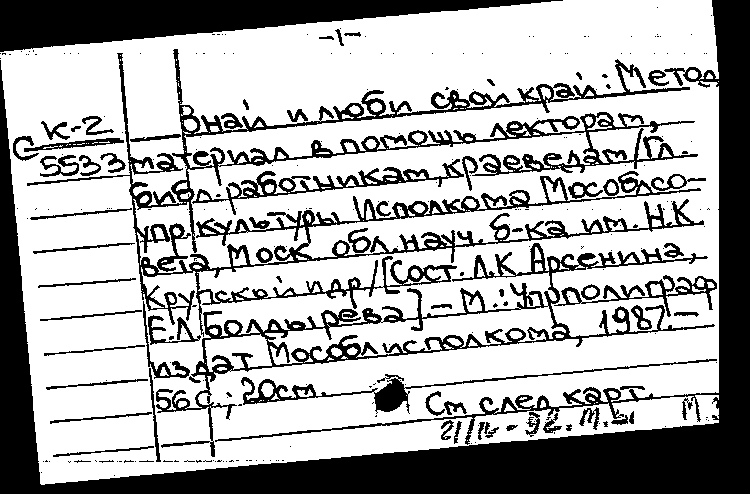 -1-
К-2 Знай и люби свой край: Метод.
С 5533 материал в помощь лекторам,
библ. работникам, краеведам/Гл.
упр. культуры Исполкома Мособлсо-
вета, Моск. обл. науч. б-ка им. Н.К.
Крупской и др/[Сост. Л.К. Арсенина,
Е.Л. Болдырева]. - М.: Упрполиграф
издат Мособлисполкома, 1987. -
56 с.; 20см.
См след карт.